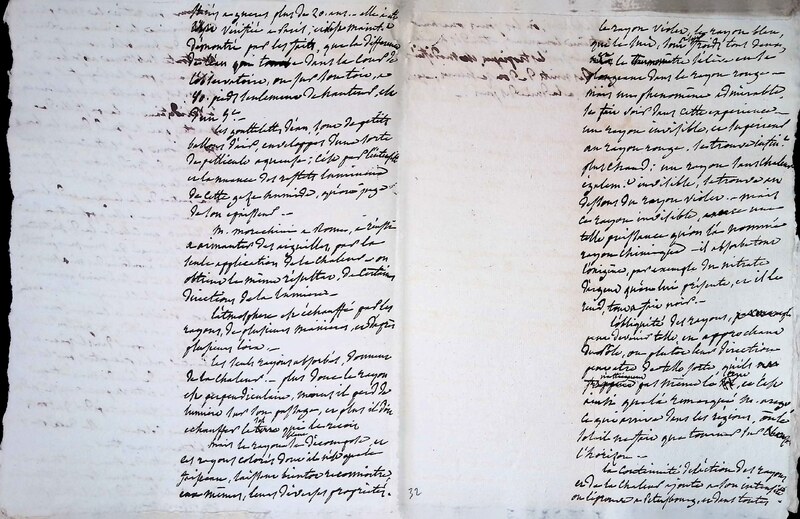 a gueres plus de 20. ans. - elle a été
vérifiée à Paris,
démontré par les faits, que la différence
dans la cour de
l'observatoire, ou sur son toit, à
40. pieds seulement de hauteur, est
d'un
Les gouttelettes d'eau, sont de petits
ballons d'air, enveloppés d'une sorte
de pellicule aqueuse; c'est par l'intensité
et la nuance des reflets lumineux
de cette gaze humide, qu'on juge
de son épaisseur -
m. morechini à Rome, a réussi
a armanter des aiguilles, par la
seule application de la chaleur - on
obtient le même résultat, de certaines
directions de la lumière -
L'atmosphère est échauffé par les
rayons, de plusieurs manières, et d'après
plusieurs loix -
Les seuls rayons absorbés, donnent
de la chaleur - plus donc le rayon
est perpendiculaire, moins il perd de
lumière sur son passage, et plus il doit
échauffer la terre qui le reçoit
mais le rayon se décompose, et
les rayons colorés dont il
faisceau, laissent bientôt reconnoître,
eux mêmes, leurs diverses propriétés.
32
le rayon violet, le rayon bleu,
qui le suit, sont froids tous deux,
le thermomètre s'élève en se
plongeant dans le rayon rouge -
mais un phénomène admirable
se fait voir dans cette expérience -
un rayon invisible, et supérieur
au rayon rouge, se trouve
plus chaud; un rayon sans chaleur
également invisible, se trouve en
dessous du rayon violet - mais
ce rayon invisible, exerce une
telle puissance qu'on l'a nommé
rayon chimique - il absorbe tout
l'oxigène, par exemple du nitrate
d'argent qu'on lui présente, et il le
rend tout à fait noir. -
L'obliquité des rayons,
peut devenir telle en approchant
du pôle, ou plutôt leur direction
peut être de telle sorte, qu'ils
pas même le sol, et c'est
aussi que l'a remarqué
ce qui arrive dans les régions, où le
soleil ne fait que tourner sur
l'horison -
La continuité d'action des rayons
et de la chaleur ajoute à son intensité
on éprouve à Petersbourg, et dans toutes